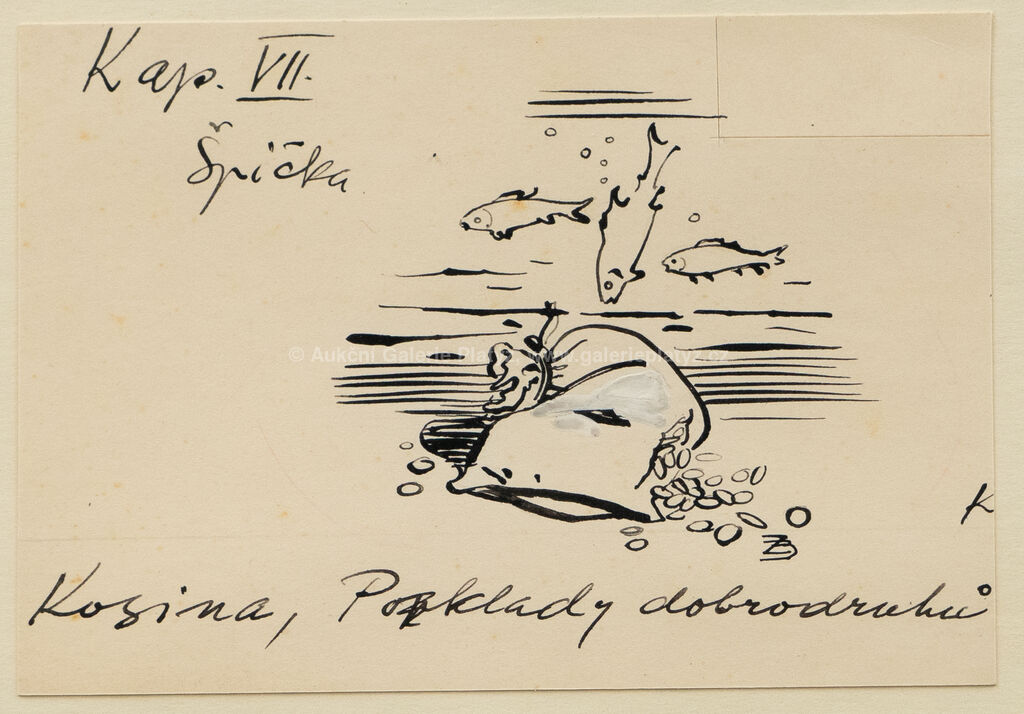 Kap. VII.
Špička
© Aukční Galerie Platýz, www.galerieplatyz.cz
K
ZB
Kozina, Poklady dobrodruhů